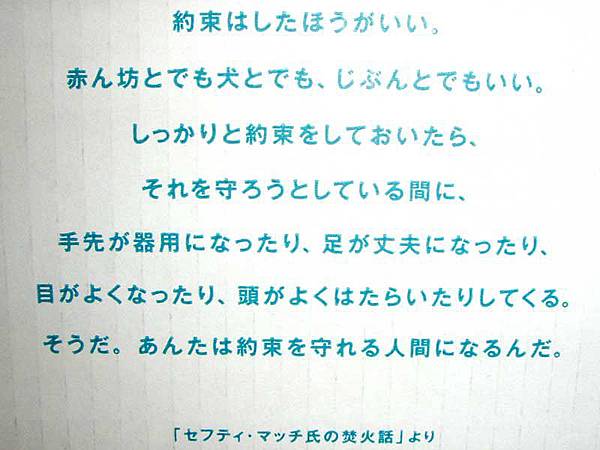 約束はしたほうがいい。
赤ん坊とでも犬とでも、じぶんとでもいい。
しっかりと約束をしておいたら、
それを守ろうとしている間に、
手先が器用になったり、足が丈夫になったり、
目がよくなったり、頭がよくはたらいたりしてくる。
そうだ。あんたは約束を守れる人間になるんだ。
「セフティ・マッチ氏の焚火話」より